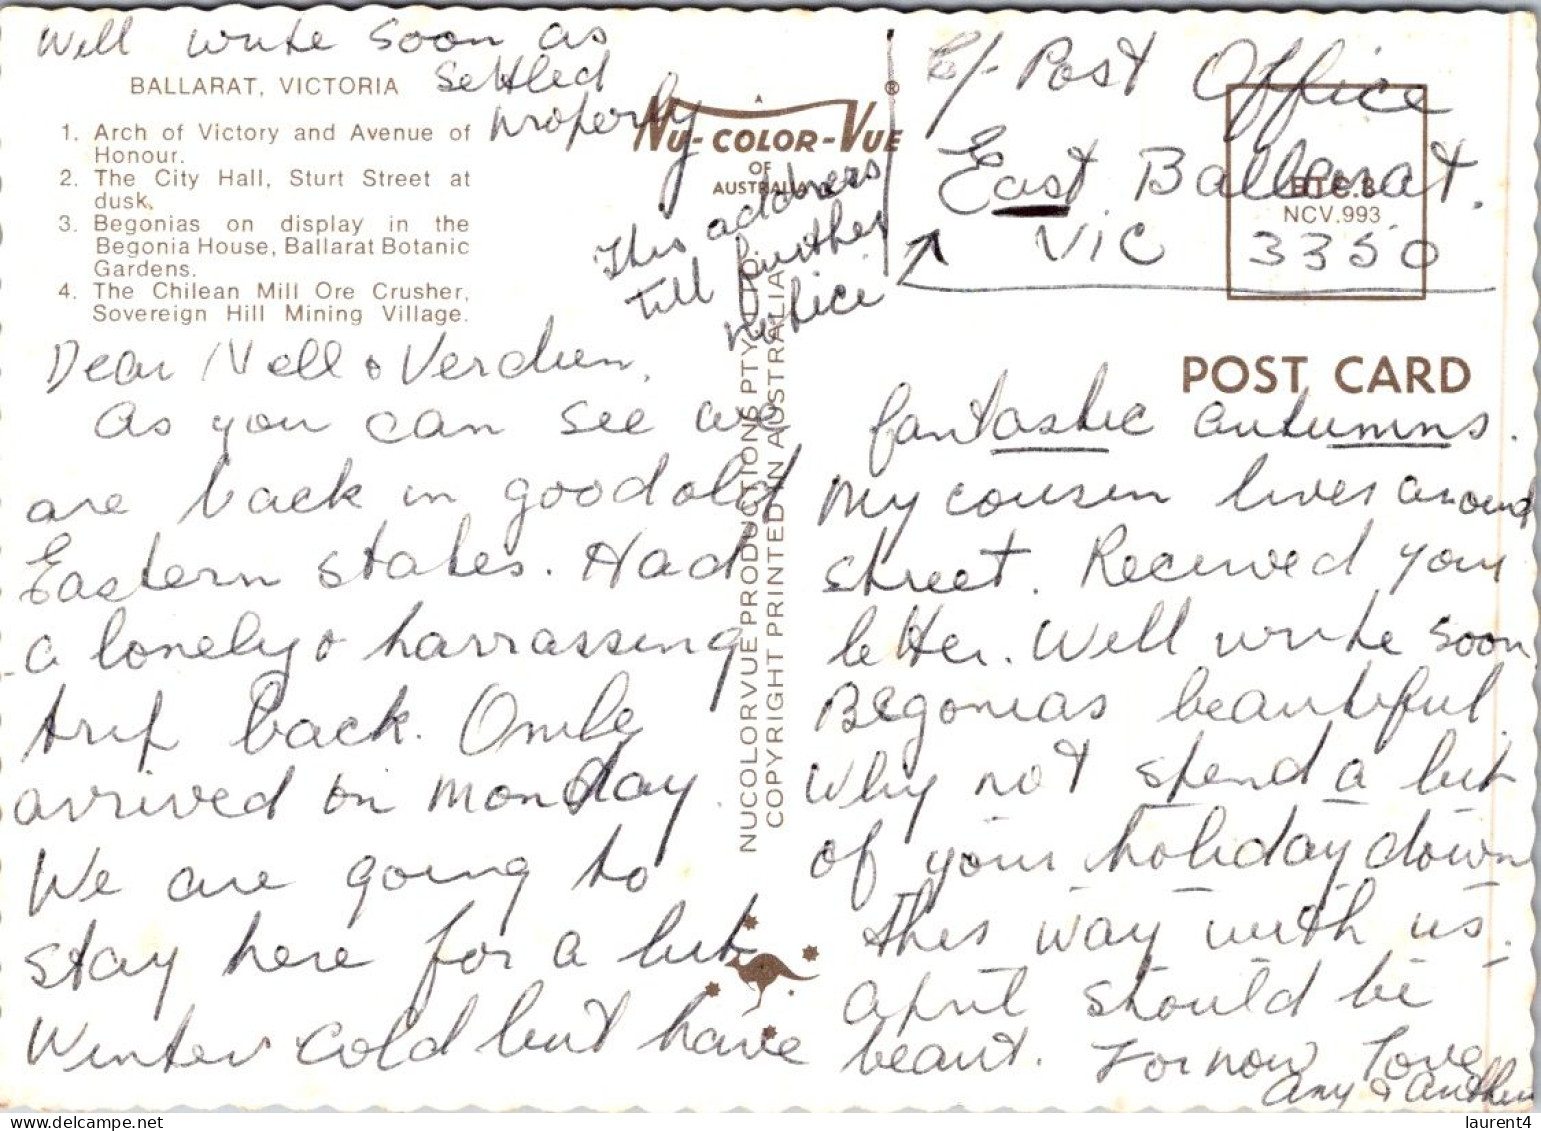 Well write soon as
settled
properly
BALLARAT, VICTORIA
1. Arch of Victory and Avenue of
Honour.
2. The City Hall, Sturt Street at
dusk.
3. Begonias on display in the
Begonia House, Ballarat Botanic
Gardens.
4. The Chilean Mill Ore Crusher,
Sovereign Hill Mining Village.
A
NU-COLOR-VUE®
OF
AUSTRALIA
This address
till further
notice
C/- Post Office
East Ballarat.
Vic 3350
NCV.993
POST CARD
NUCOLORVUE PRODUCTIONS PTY. LTD.
COPYRIGHT PRINTED IN AUSTRALIA
Dear Nell &
As you can see we
are back in good old
Eastern states. Had
a lonely & harrassing
trip back.
arrived on Monday.
We are going to
stay here for a bit
Winter cold but have
fantastic autumns.
My cousin lives around
street. Received your
letter. Well write soon
Begonias beautiful.
Why not spend a bit
of your holiday down
this way with us.
April should be
beaut. For now Love
Amy & Arthur
laurent4